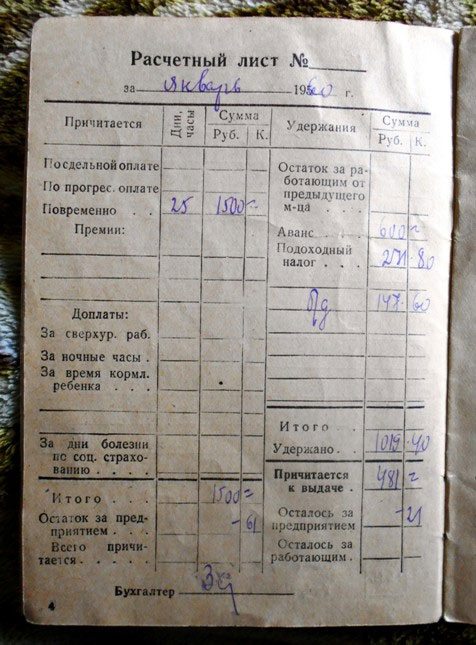 Расчетный лист №
за январь 1960 г.
Причитается
Дни, часы
Сумма
Руб. К.
Посдельной оплате
По прогрес. оплате
Повременно . . 25 1500=
Премии:
Доплаты:
За сверхур. раб.
За ночные часы .
За время кормл.
ребенка . . . .
За дни болезни
по соц. страхо-
ванию . . . .
Итого . . . 1500=
Остаток за пред-
приятием . . . -61
Всего причи-
тается. . . . .
Удержания
Сумма
Руб. К.
Остаток за ра-
ботающим от
предыдущего
м-ца . . . .
Аванс . . . 600=
Подоходный
налог . . . . 271-80
147-60
Итого
Удержано . . 1019-40
Причитается
к выдаче . . 481=
Осталось за
предприятием -21
Осталось за
работающим .
Бухгалтер
4